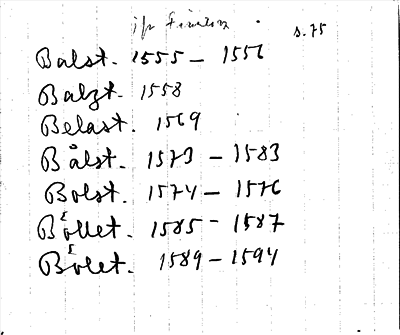 s. 75
Balst. 1555 - 1556
Balzt. 1558
Belast. 1569
Bålst. 1573 - 1583
Bolst. 1574 - 1576
Bollet. 1585 - 1587
Bolet. 1589 - 1594